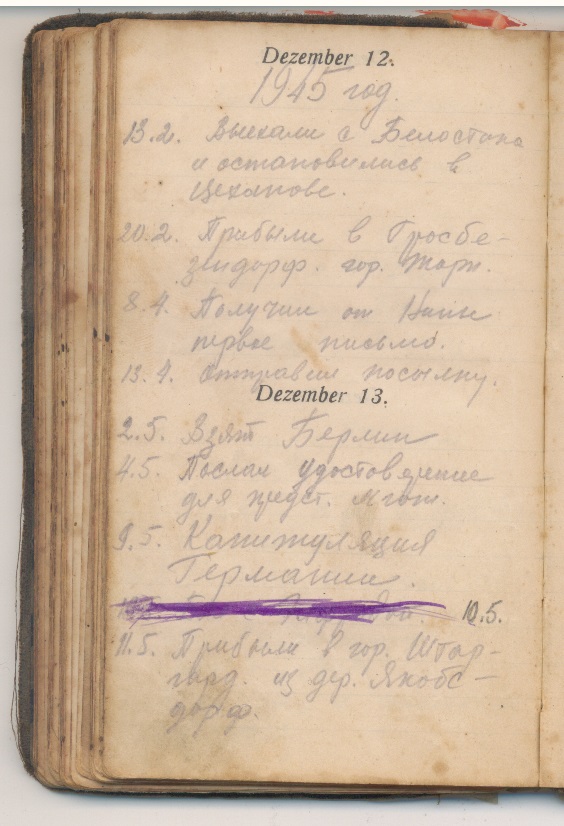 Dezember 12.
1945 год.
13.2. Выехали с Белостока
и остановились в
Цеханове.
20.2. Прибыли в Гросбе-
зендорф. гор. Торн.
8.4. Получил от Нины
первое письмо.
13.4. Отправил посылку.
Dezember 13.
2.5. Взят Берлин
4.5. Послал удостоверение
для предст. льгот.
9.5. Капитуляция
Германии.
10.5.
11.5. Прибыли в гор. Штар-
гард. из дер. Якобс-
дорф.